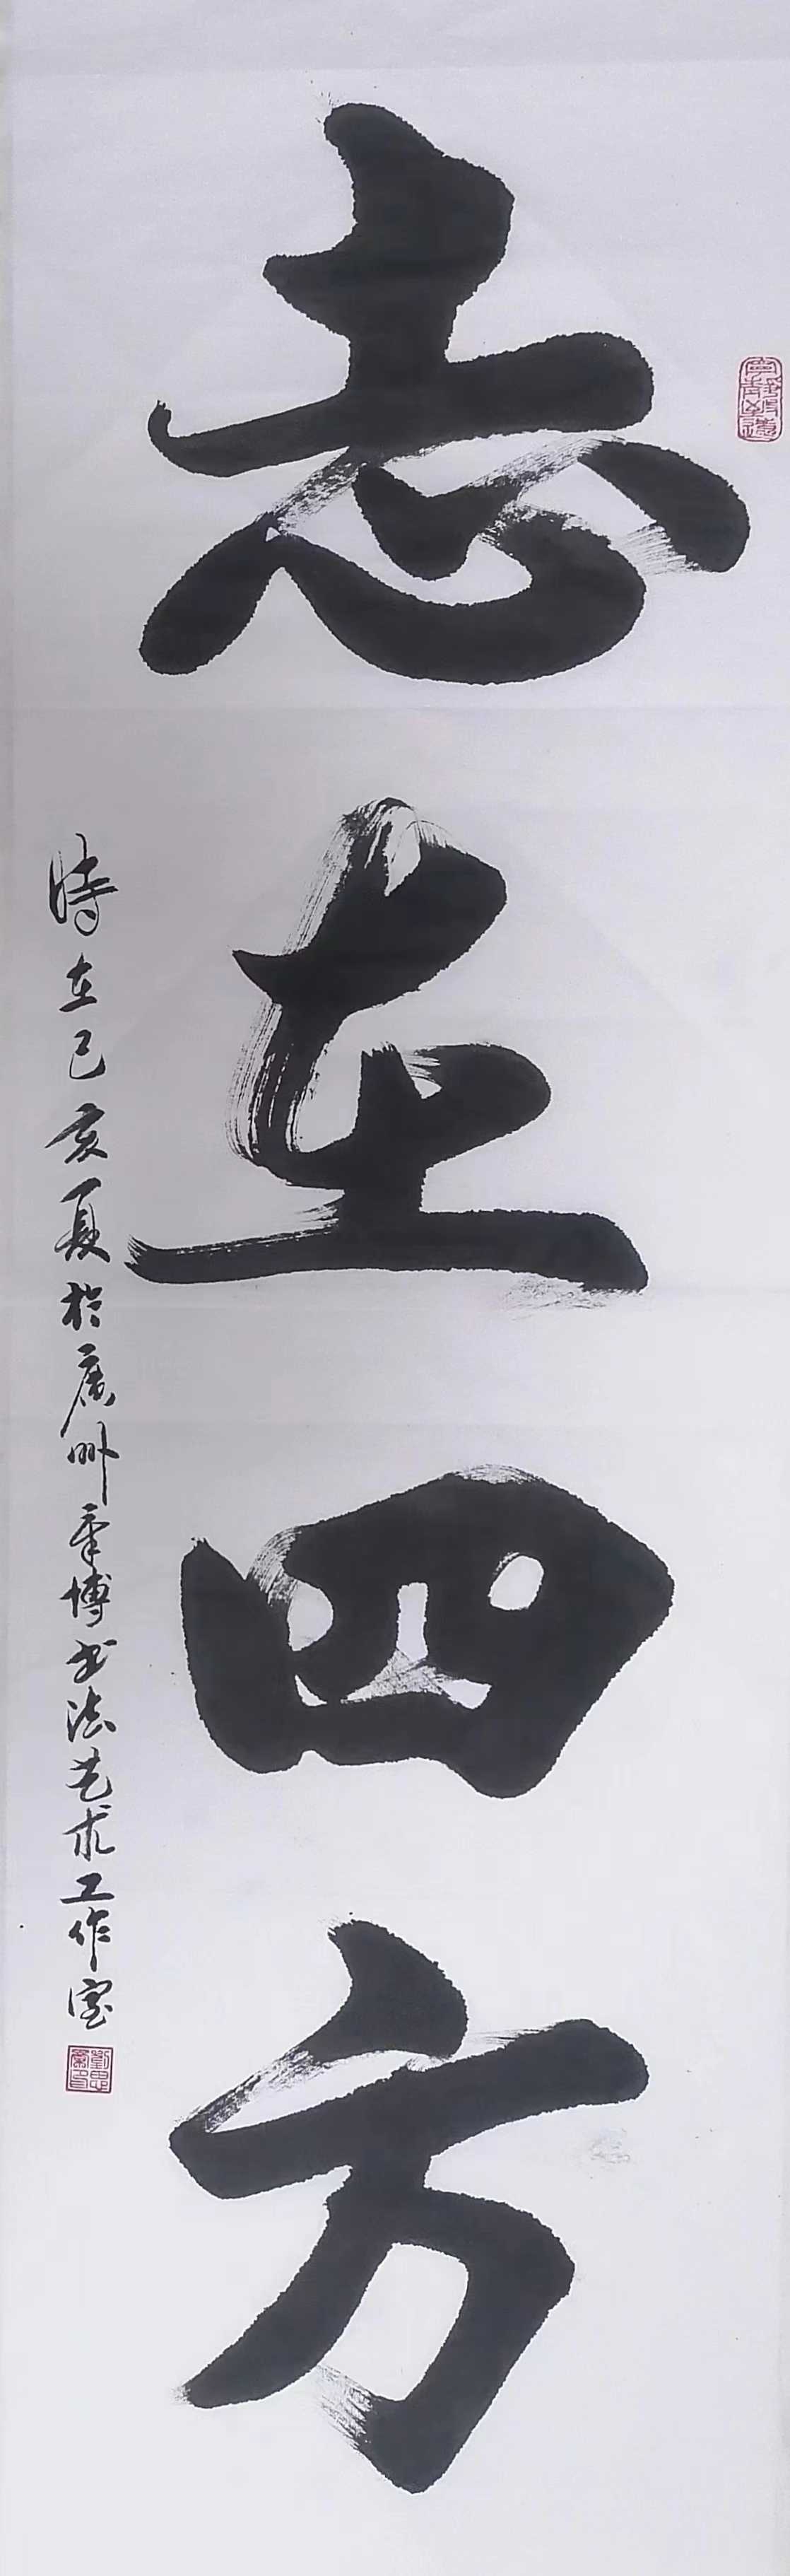 志在四方
時在己亥夏於廣州季博书法艺术工作室